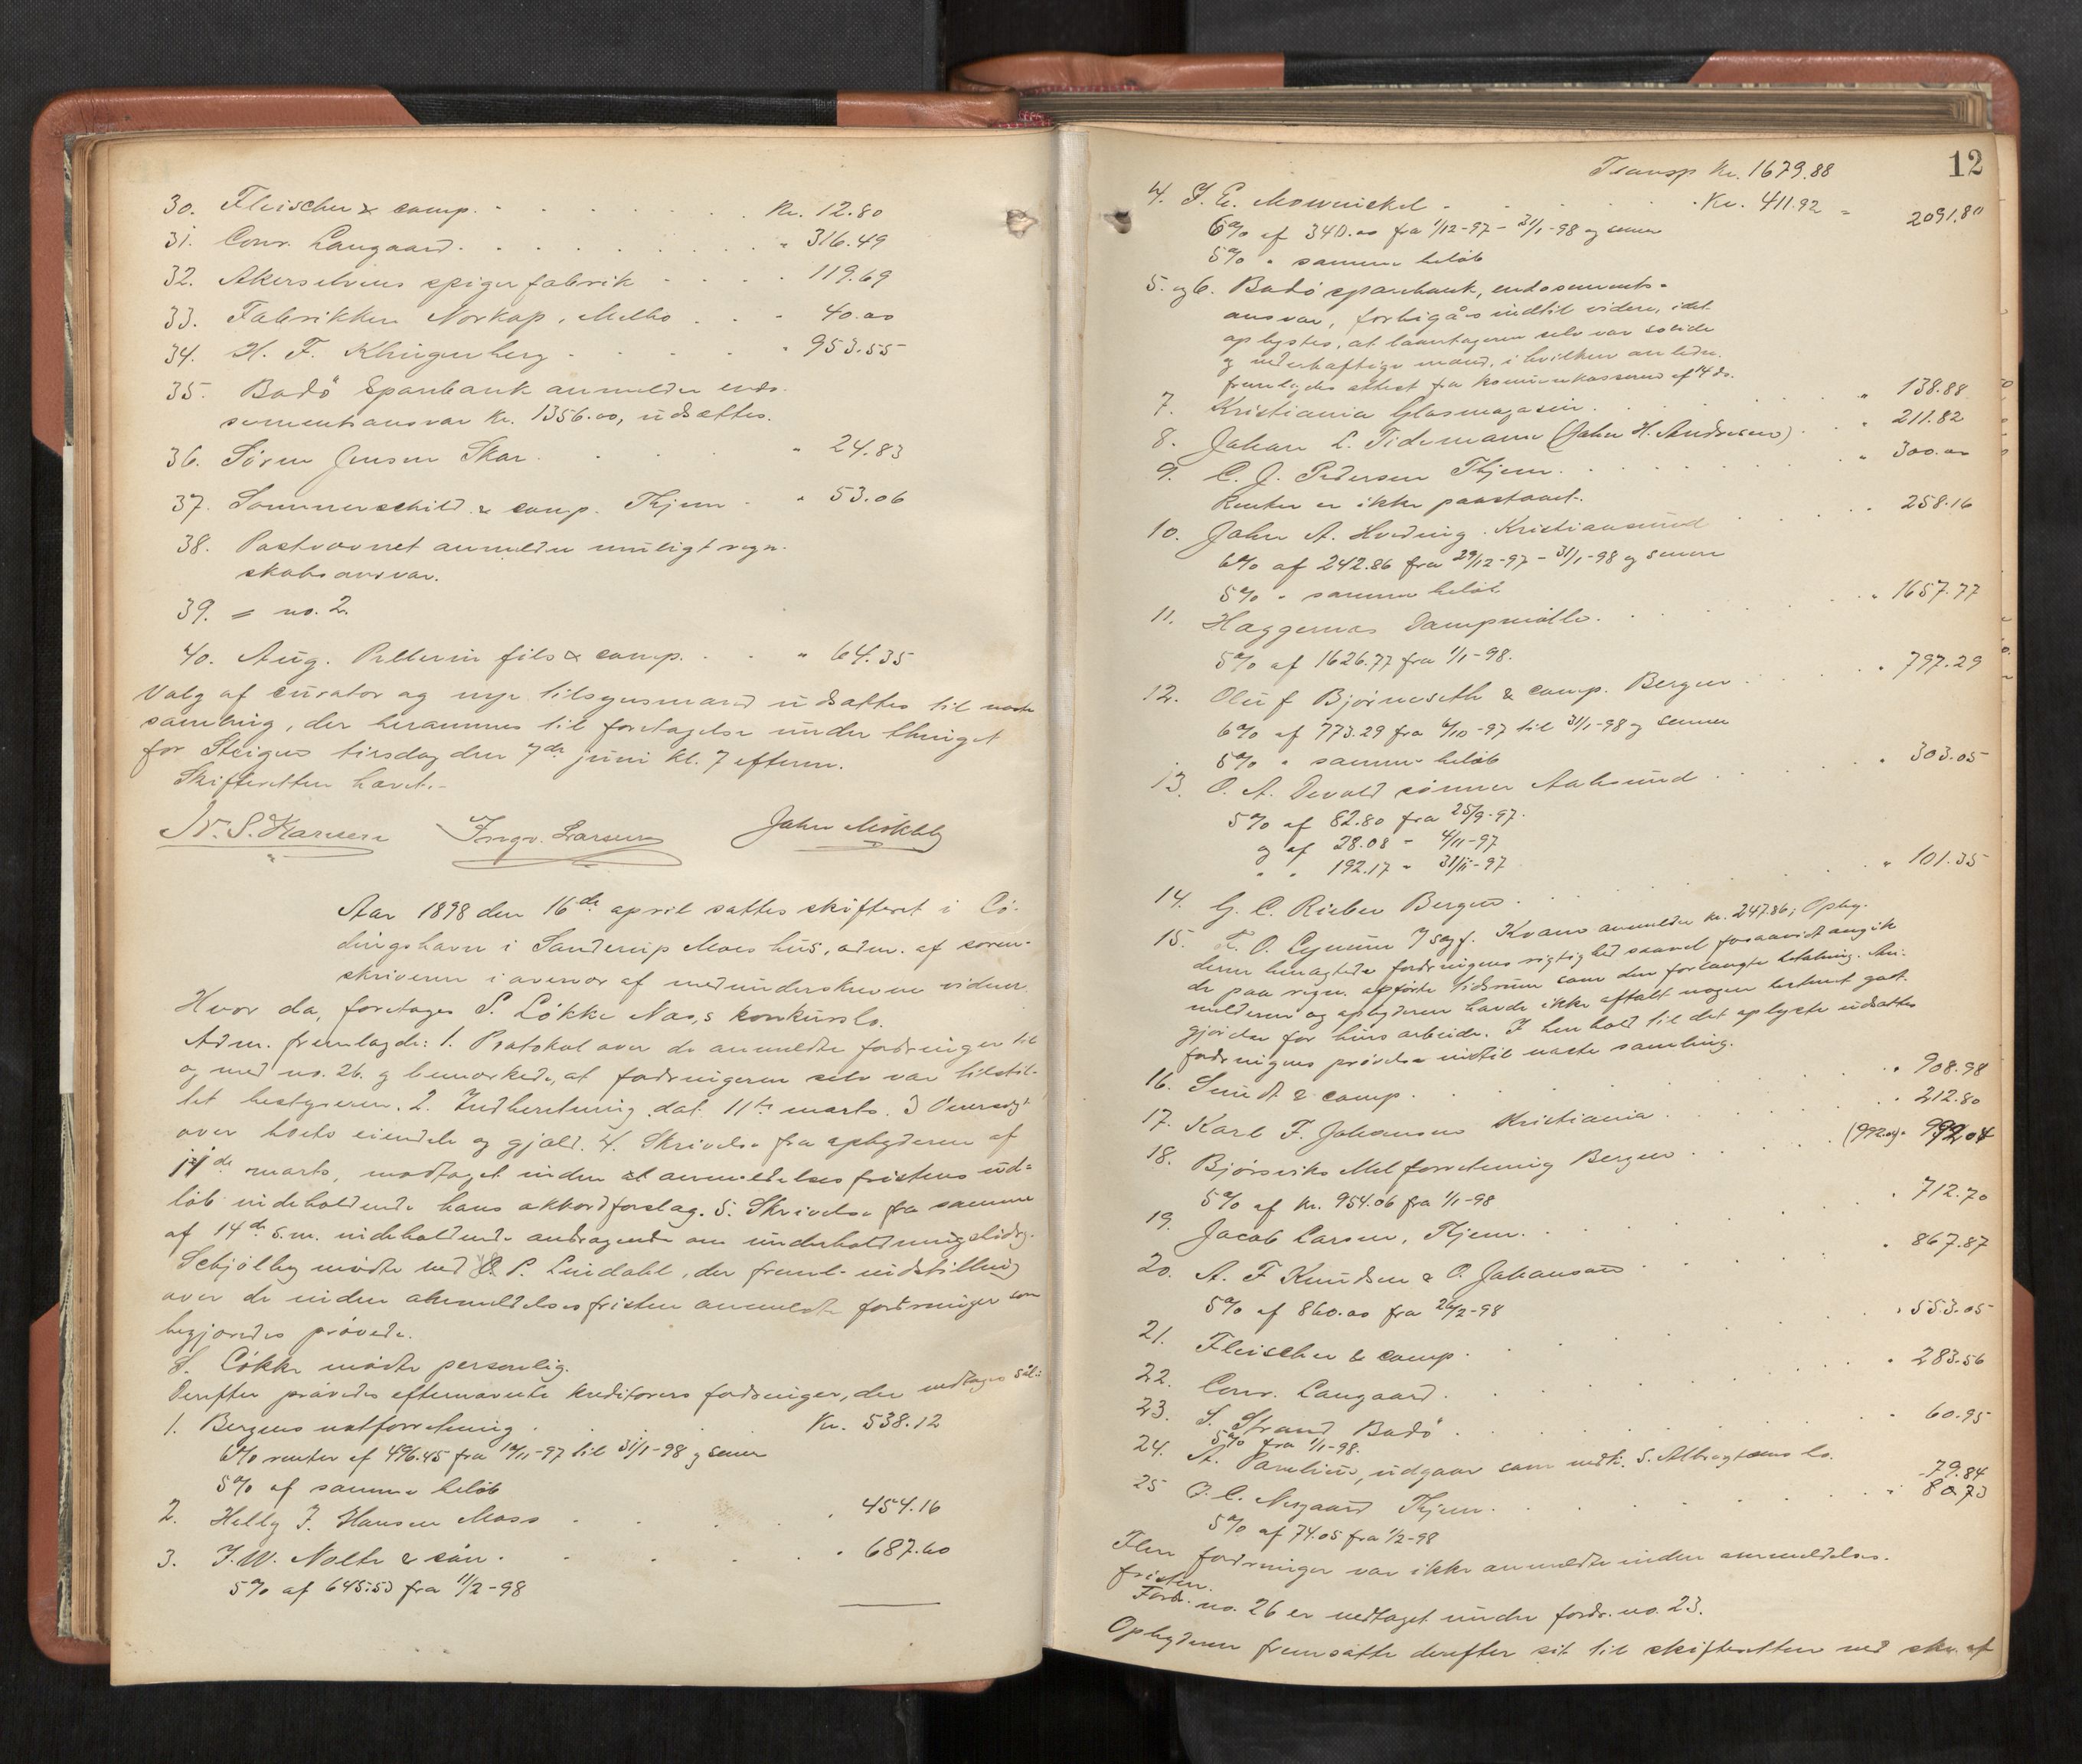 30. Fleischer & comp. Kr. 12.80
31. Conr. Langaard. " 316.49
32. Akerselvens spigerfabrik " 119.69
33. Fabrikken Norkap, Melbo " 40.00
34. H. F. Klingenberg " 953.55
35. Bodö Sparebank anmelder endo-
sementsansvar kr. 1356.00, udsættes.
36. Sören Jensen Skar. " 24.83
37. Sommerschild & comp. Thjem " 53.06
38. Postvæsnet anmelder muligt regn-
skabsansvar.
39. = no. 2.
40. Aug. Pellerin fils & comp. " 64.35
Valg af curator og nye tilsynsmænd udsattes til næste
samling, der berammes til foretagelse under thinget
for Steigen tirsdag den 7de juni kl. 7 efterm.
Skifteretten hævet.-
N. S. Hansen Ingv. Larsen John
Aar 1898 den 16de april sattes skifteret i Lö-
dingshavn i Sanderup Moes hus, adm. af soren-
skriveren i overvær af medunderskrevne vidner.
Hvor da, foretages S. Lökke Næs,s konkursbo.
Adm. fremlagde: 1. Protokol over de anmeldte fordringer til
og med no. 26. og bemærkede, at fordringerne selv var tilstil-
let bestyreren. 2. Indberetning dat. 11te marts. 3 Oversigt
over boets eiendele og gjæld. 4. Skrivelse fra opbyderen af
11de marts, modtaget inden anmeldelsesfristens ud-
löb indeholdende hans akkordforslag. 5. Skrivelse fra samme
af 14de d.m. indeholdende andragende om underholdningsbidrag.
Schjölby mödte ved O. P. Lindahl, der freml. indstilling
over de inden anmeldelsesfristen anmeldte fordringer som
begjæredes prövede.
S. Lökke mödte personlig.
Derefter prövedes efternævnte kreditorers fordringer, der vedtages sål:
1. Bergens notforretning. Kr. 538.12
6% renter af 496.45 fra 10/11-97 til 31/1-98 og senere
5% af samme belöb
2. Helly J. Hansen Moss " 454.16
3. J. W. Nolte & sön. " 687.60
5% af 645.53 fra 11/2-98
12
Transp Kr. 1679.88
4. J. E. Mowinckel Kr. 411.92 = 2091.80
6% af 340.00 fra 1/12-97 - 31/1-98 og senere
5% " samme belöb
5. og 6. Bodö sparebank, endosements-
ansvar, forbigåes indtil videre, idet
oplystes, at laantageren selv var solide
og vederhæftige mænd, i hvilken anledn.
fremlagdes attest fra kommunekassereren af 14 ds.
7. Kristiania Glasmagasin. " 138.88
8. Johan L. Tidemann (Joh. H. Andresen) " 211.82
9. C. J. Pedersen Thjem. " 300.00
Renter er ikke paastaaet.
10. John A. Hveding. Kristiansund " 258.16
6% af 242.86 fra 29/12-97 - 31/1-98 og senere
5% " samme belöb
11. Haggernæs Dampmölle. " 1657.77
5% af 1626.77 fra 1/1-98.
12. Oluf Bjørneseth & comp. Bergen " 797.29
6% af 773.29 fra 6/10-97 til 31/1-98 og senere
5% " samme belöb
13. O. A. Devold sönner Aalesund " 303.05
5% af 82.80 fra 25/9-97.
og af 28.08 - 4/11-97
" " 192.17 - 31/11-97
14. G. C. Rieber Bergen " 101.35
15. O. Kvam anmelder kr. 247.86; Opby-
deren benægtede fordringens rigtighed saavel forsaavidt angik
de paa regn. opförte tidsrum som den forlangte betaling. An-
melderen og opbyderen havde ikke aftalt nogen bestemt godt-
gjörelse for hans arbeide. I henhold til det oplyste udsattes
fordringens prövelse indtil næste samling.
16. Sundt & comp. " 908.98
17. Karl F. Johansen Kristiania " 212.80
18. Bjørsviks Melforretning Bergen (992.04) 992.04
5% af kr. 954.06 fra 1/1-98
19. Jacob Larsen, Thjem. " 712.70
20. A. F. Knudsen & O. Johansen " 867.87
5% af 860.00 fra 26/2-98
21. Fleischer & comp. " 553.05
22. Conr. Langaard. " 283.56
23. S. Strand Bodö " 60.95
5% fra 1/1-98.
24. A. Parelius, udgaar som vedk. S. Albregtsens bo.
79.84
25 O. C. Nesgaard Thjem. " 80.73
5% af 74.05 fra 1/2-98
Flere fordringer var ikke anmeldte inden anmeldelses-
fristen.
Fordr. no. 26 er vedtaget under fordr. no. 23.
Opbyderen fremsatte derefter sit til skifteretten ved skr. af